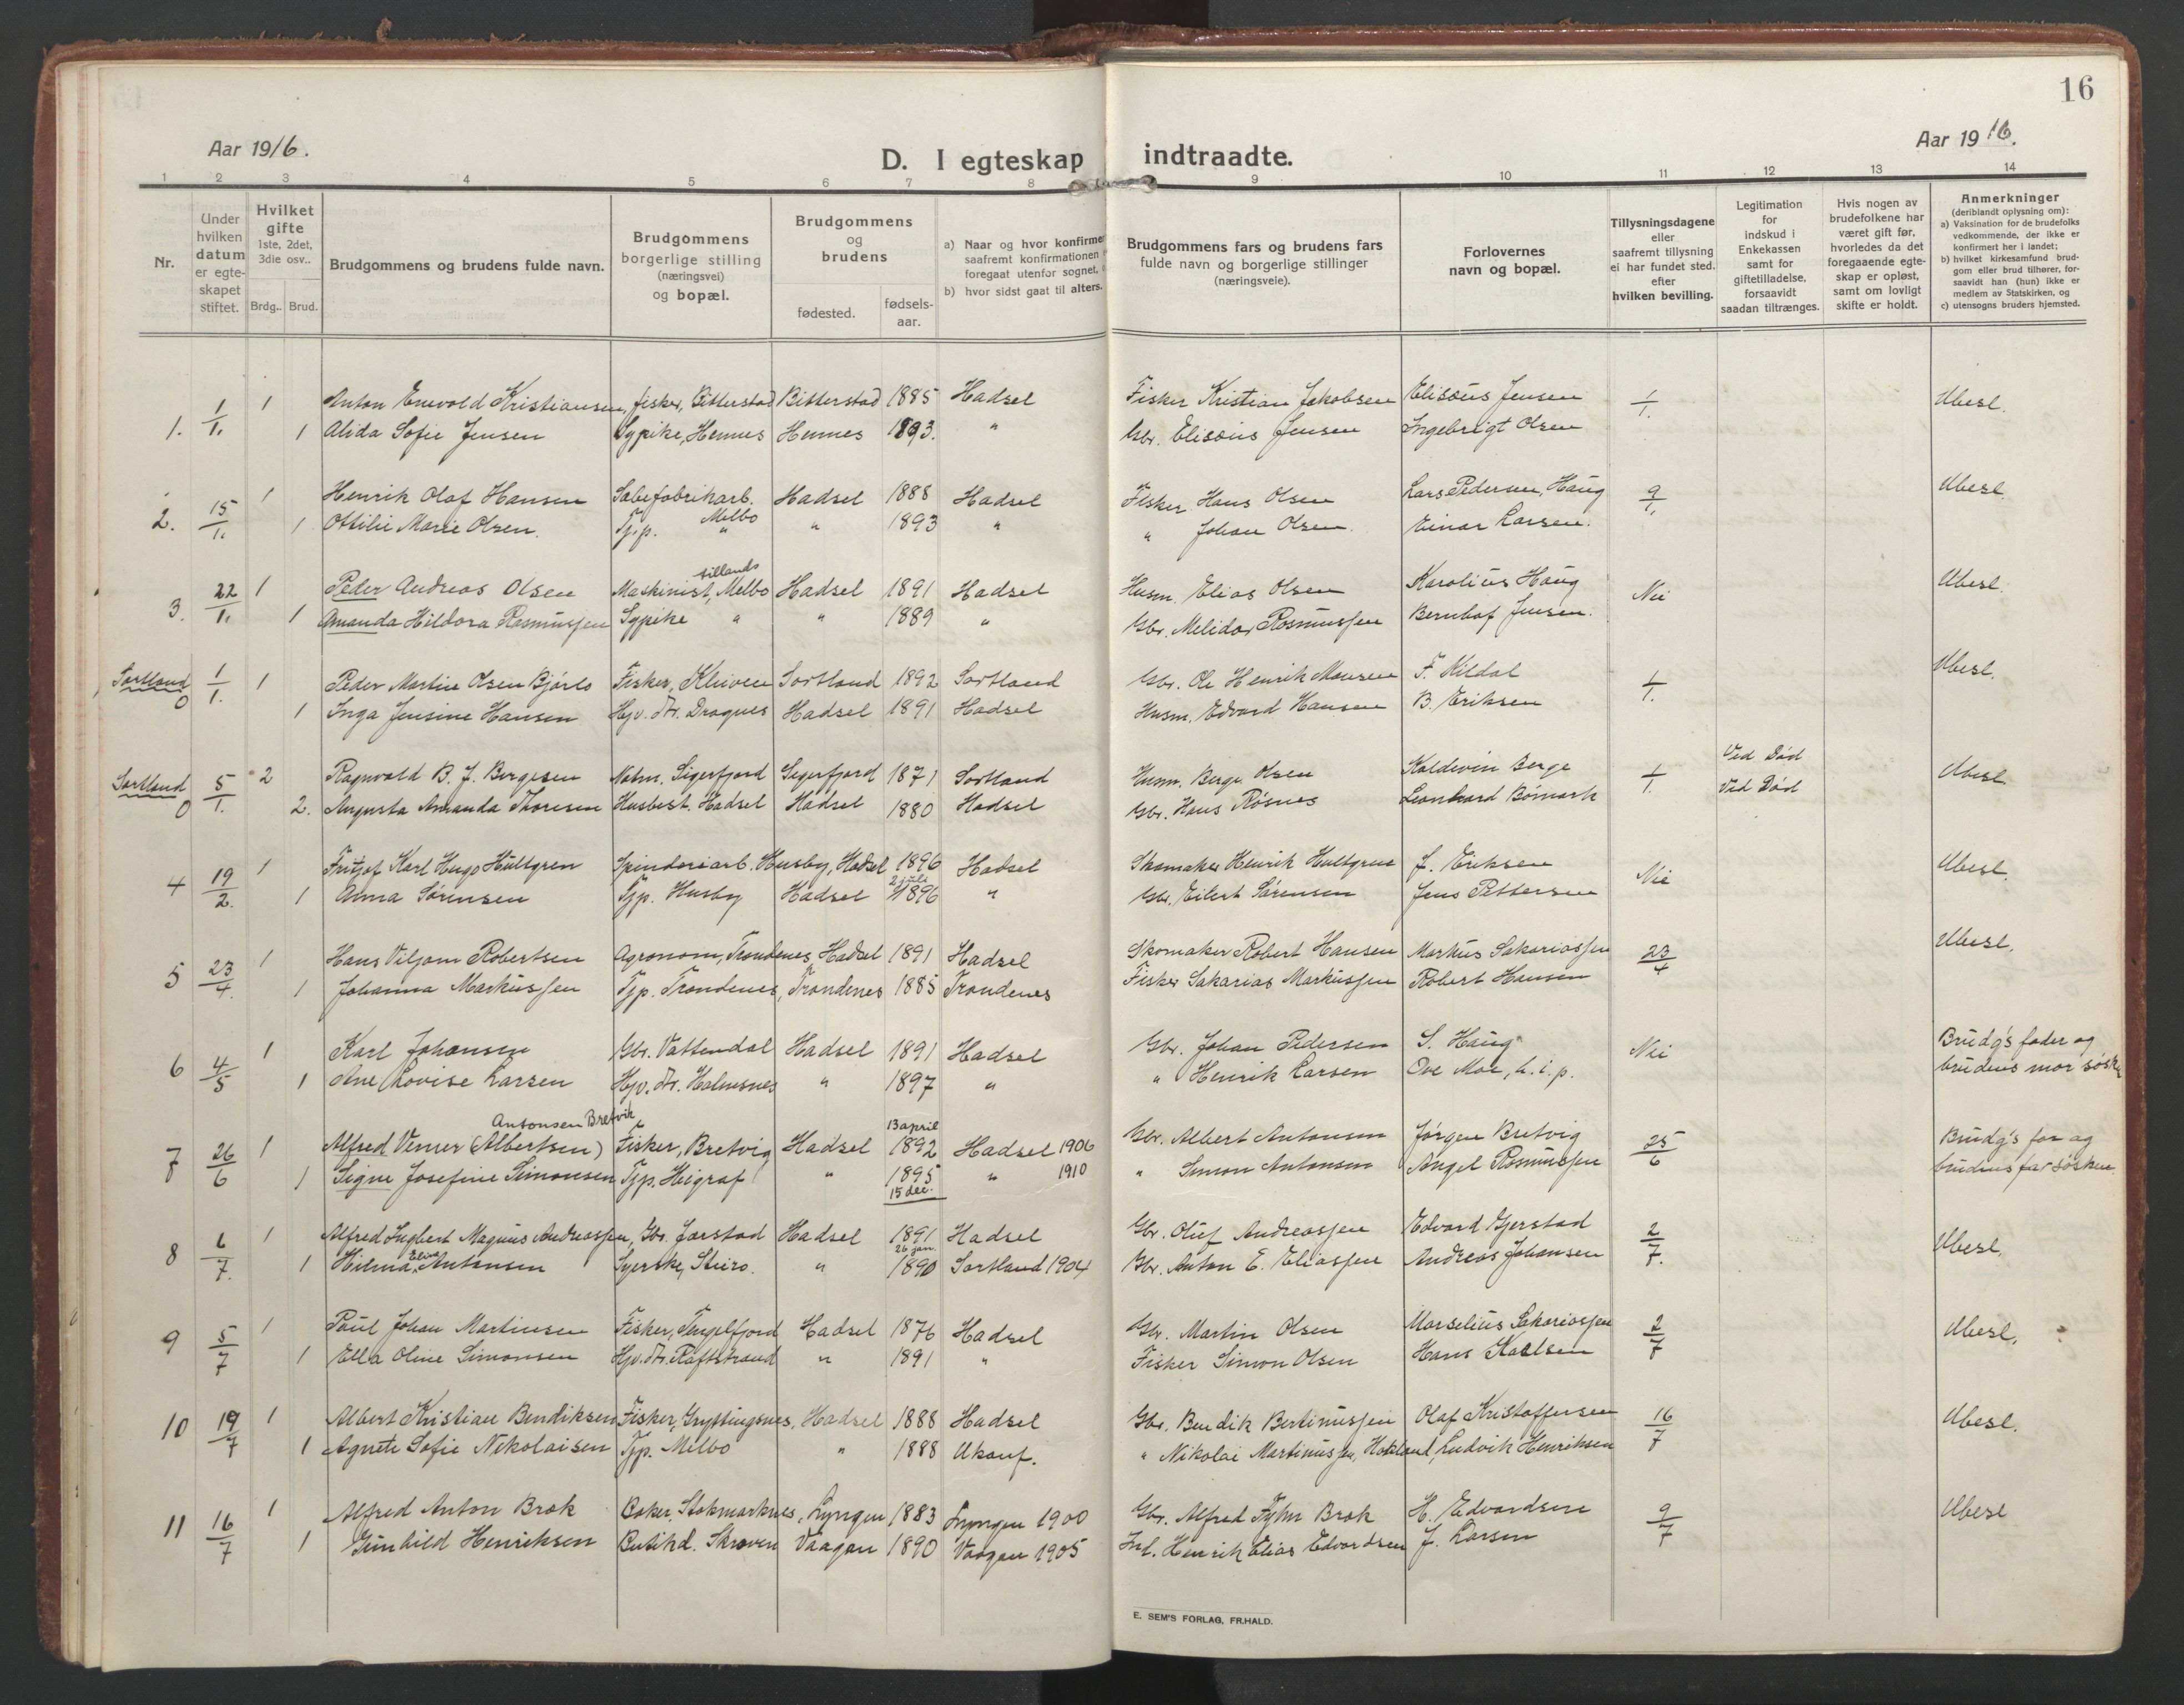 16
Aar 1916.
Aar 1916.
D. I egteskap indtraadte.
1 2 3 4 5 6 7 8 9 10 11 12 13 14
Nr.
Under hvilken datum er egteskapet stiftet.
Hvilket gifte 1ste, 2det, 3die osv..
Brdg. Brud.
Brudgommens og brudens fulde navn.
Brudgommens borgerlige stilling (næringsvei) og bopæl.
Brudgommens og brudens
fødested.
fødsels-aar.
a) Naar og hvor konfirme
saafremt konfirmationen
foregaat utenfor sognet,
b) hvor sidst gaat til alters.
Brudgommens fars og brudens fars
fulde navn og borgerlige stillinger
(næringsveie).
Forlovernes
navn og bopæl.
Tillysningsdagene
eller
saafremt tillysning
ei har fundet sted.
efter
hvilken bevilling.
Legitimation
for
indskud i
Enkekassen
samt for
giftetilladelse,
forsaavidt
saadan tiltrænges.
Hvis nogen av
brudefolkene har
været gift før,
hvorledes da det
foregaaende egte-
skap er opløst,
samt om lovligt
skifte er holdt.
Anmerkninger
(deriblandt oplysning om):
a) Vaksination for de brudefolks
vedkommende, der ikke er
konfirmert her i landet;
b) hvilket kirkesamfund brud-
gom eller brud tilhører, for-
saavidt han (hun) ikke er
medlem av Statskirken, og
c) utensogns bruders hjemsted.
1. 1/1. 1 Anton Enevold Kristiansen, fisker, Bitterstad Bitterstad 1885 Hadsel Fisker Kristian Jakobsen Elisæus Jensen 1/1. Ubesl.
1 Alida Sofie Jensen Sypike, Hennes Hennes 1893. " Gbr. Elisæus Jensen Ingebrigt Olsen
2. 15/1. 1 Henrik Olaf Hansen Sæbefabrikarb. Melbo Hadsel 1888 Hadsel Fisker Hans Olsen Lars Pedersen, Haug 9/1. Ubesl.
1 Ottilie Marie Olsen. Tjp. " " 1893 " " Johan Olsen. Einar Larsen.
3. 22/1. 1 Peder Andreas Olsen Maskinist, tillands Melbo Hadsel 1891 Hadsel Husm. Elias Olsen Karolius Haug Nei Ubesl.
1 Amanda Hildora Rasmussen Sypike " " 1889 " Gbr. Melidor Rasmussen Bernhof Jensen.
Sortland 0 1/1. 1 Peder Martin Olsen Bjørlo Fisker, Kleiven Sortland 1892 Sortland Gbr. Ole Henrik Monsen F. Kildal 1/1. Ubesl.
1 Inga Jensine Hansen Hjv. dtr. Dragnes Hadsel 1891 Hadsel Husm. Edvard Hansen B. Eriksen
Sortland 0 5/1. 2 Ragnvald B. J. Bergesen Sigerfjord Sigerfjord 1871 Sortland Husm. Berge Olsen Koldevin Berge 1/1. Ved Død Ubesl.
2. Augusta Amanda Thoresen Husbest. Hadsel Hadsel 1880 Hadsel Gbr. Hans Røsnes Leonhard Bømark Ved Død
4 19/2. 1 Fritjof Karl Hugo Hultgren Spinderiarb. Husby, Hadsel 1896 Hadsel Skomaker Henrik Hultgren J. Eriksen Nei Ubesl.
1 Anna Sørensen Tjp. Husby Hadsel 2 juli 1896 " Gbr. Eilert Sørensen Jens Pettersen
5 23/4. 1 Hans Viljam Robertsen Agronom, Trondenes, Hadsel 1891 Hadsel Skomaker Robert Hansen Markus Sakariassen 23/4 Ubesl.
1 Johanna Markussen Tjp. Trondenes, Trondenes 1885 Trondenes Fisker Sakarias Markussen Robert Hansen
6 4/5 1 Karl Johansen Gbr. Vattendal Hadsel 1891 Hadsel Gbr. Johan Pedersen S. Haug Nei Brudg's fader og
1 Ane Lovise Larsen Hjv. dtr. Holmsnes " 1897 " " Henrik Larsen Ove Moe, h. i. p. brudens mor søsk
7 26/6 1 Alfred Verner (Albertsen) Antonsen Bretvik Fisker, Bretvig Hadsel 13 april 1892 Hadsel 1906 Gbr. Albert Antonsen Jørgen Bretvig 25/6 Brudg's far og
1 Signe Josefine Simonsen Tjp. Heigraf " 1895 15 dec. " 1910 " Simon Antonsen Angel Rasmussen brudens far søsken
8 6/7. 1 Alfred Ingbert Magnus Andreassen, Gbr. Jørstad Hadsel 1891 Hadsel Gbr. Oluf Andreassen Edvard Gjerstad 2/7. Ubesl.
1 Hilma Elise Antonsen Syerske, Steiro. " 26 jan. 1890 Sortland 1904 Gbr. Anton E. Eliassen Andreas Johansen
9 5/7 1 Paul Johan Martinsen Fisker, Tengelfjord Hadsel 1876 Hadsel Gbr. Martin Olsen Marselius Sakariassen 2/7 Ubesl.
1 Ella Oline Simonsen Hjv. dtr. Raftstrand " 1891 " Fisker Simon Olsen Hans Karlsen
10 19/7 1 Albert Kristian Bendiksen Fisker, Gryttingsnes, Hadsel 1888 Hadsel Gbr. Bendik Bertinussen Olaf Kristoffersen 16/7 Ubesl.
1 Agnete Sofie Nikolaisen Tjp. Melbo " 1888 Ukonf. " Nikolai Martinussen, Ludvik Henriksen
11 16/7 1 Alfred Anton Bræk Baker, Stokmarknes, Lyngen 1883 Lyngen 1900 Gbr. Alfred Fyhn Bræk H. Edvardsen 9/7 Ubesl
1 Gunhild Henriksen Butikd. Skroven Vaagan 1890 Vaagan 1905 Henrik Elias Edvardsen J. Larsen
E. SEM'S FORLAG, FR.HALD.